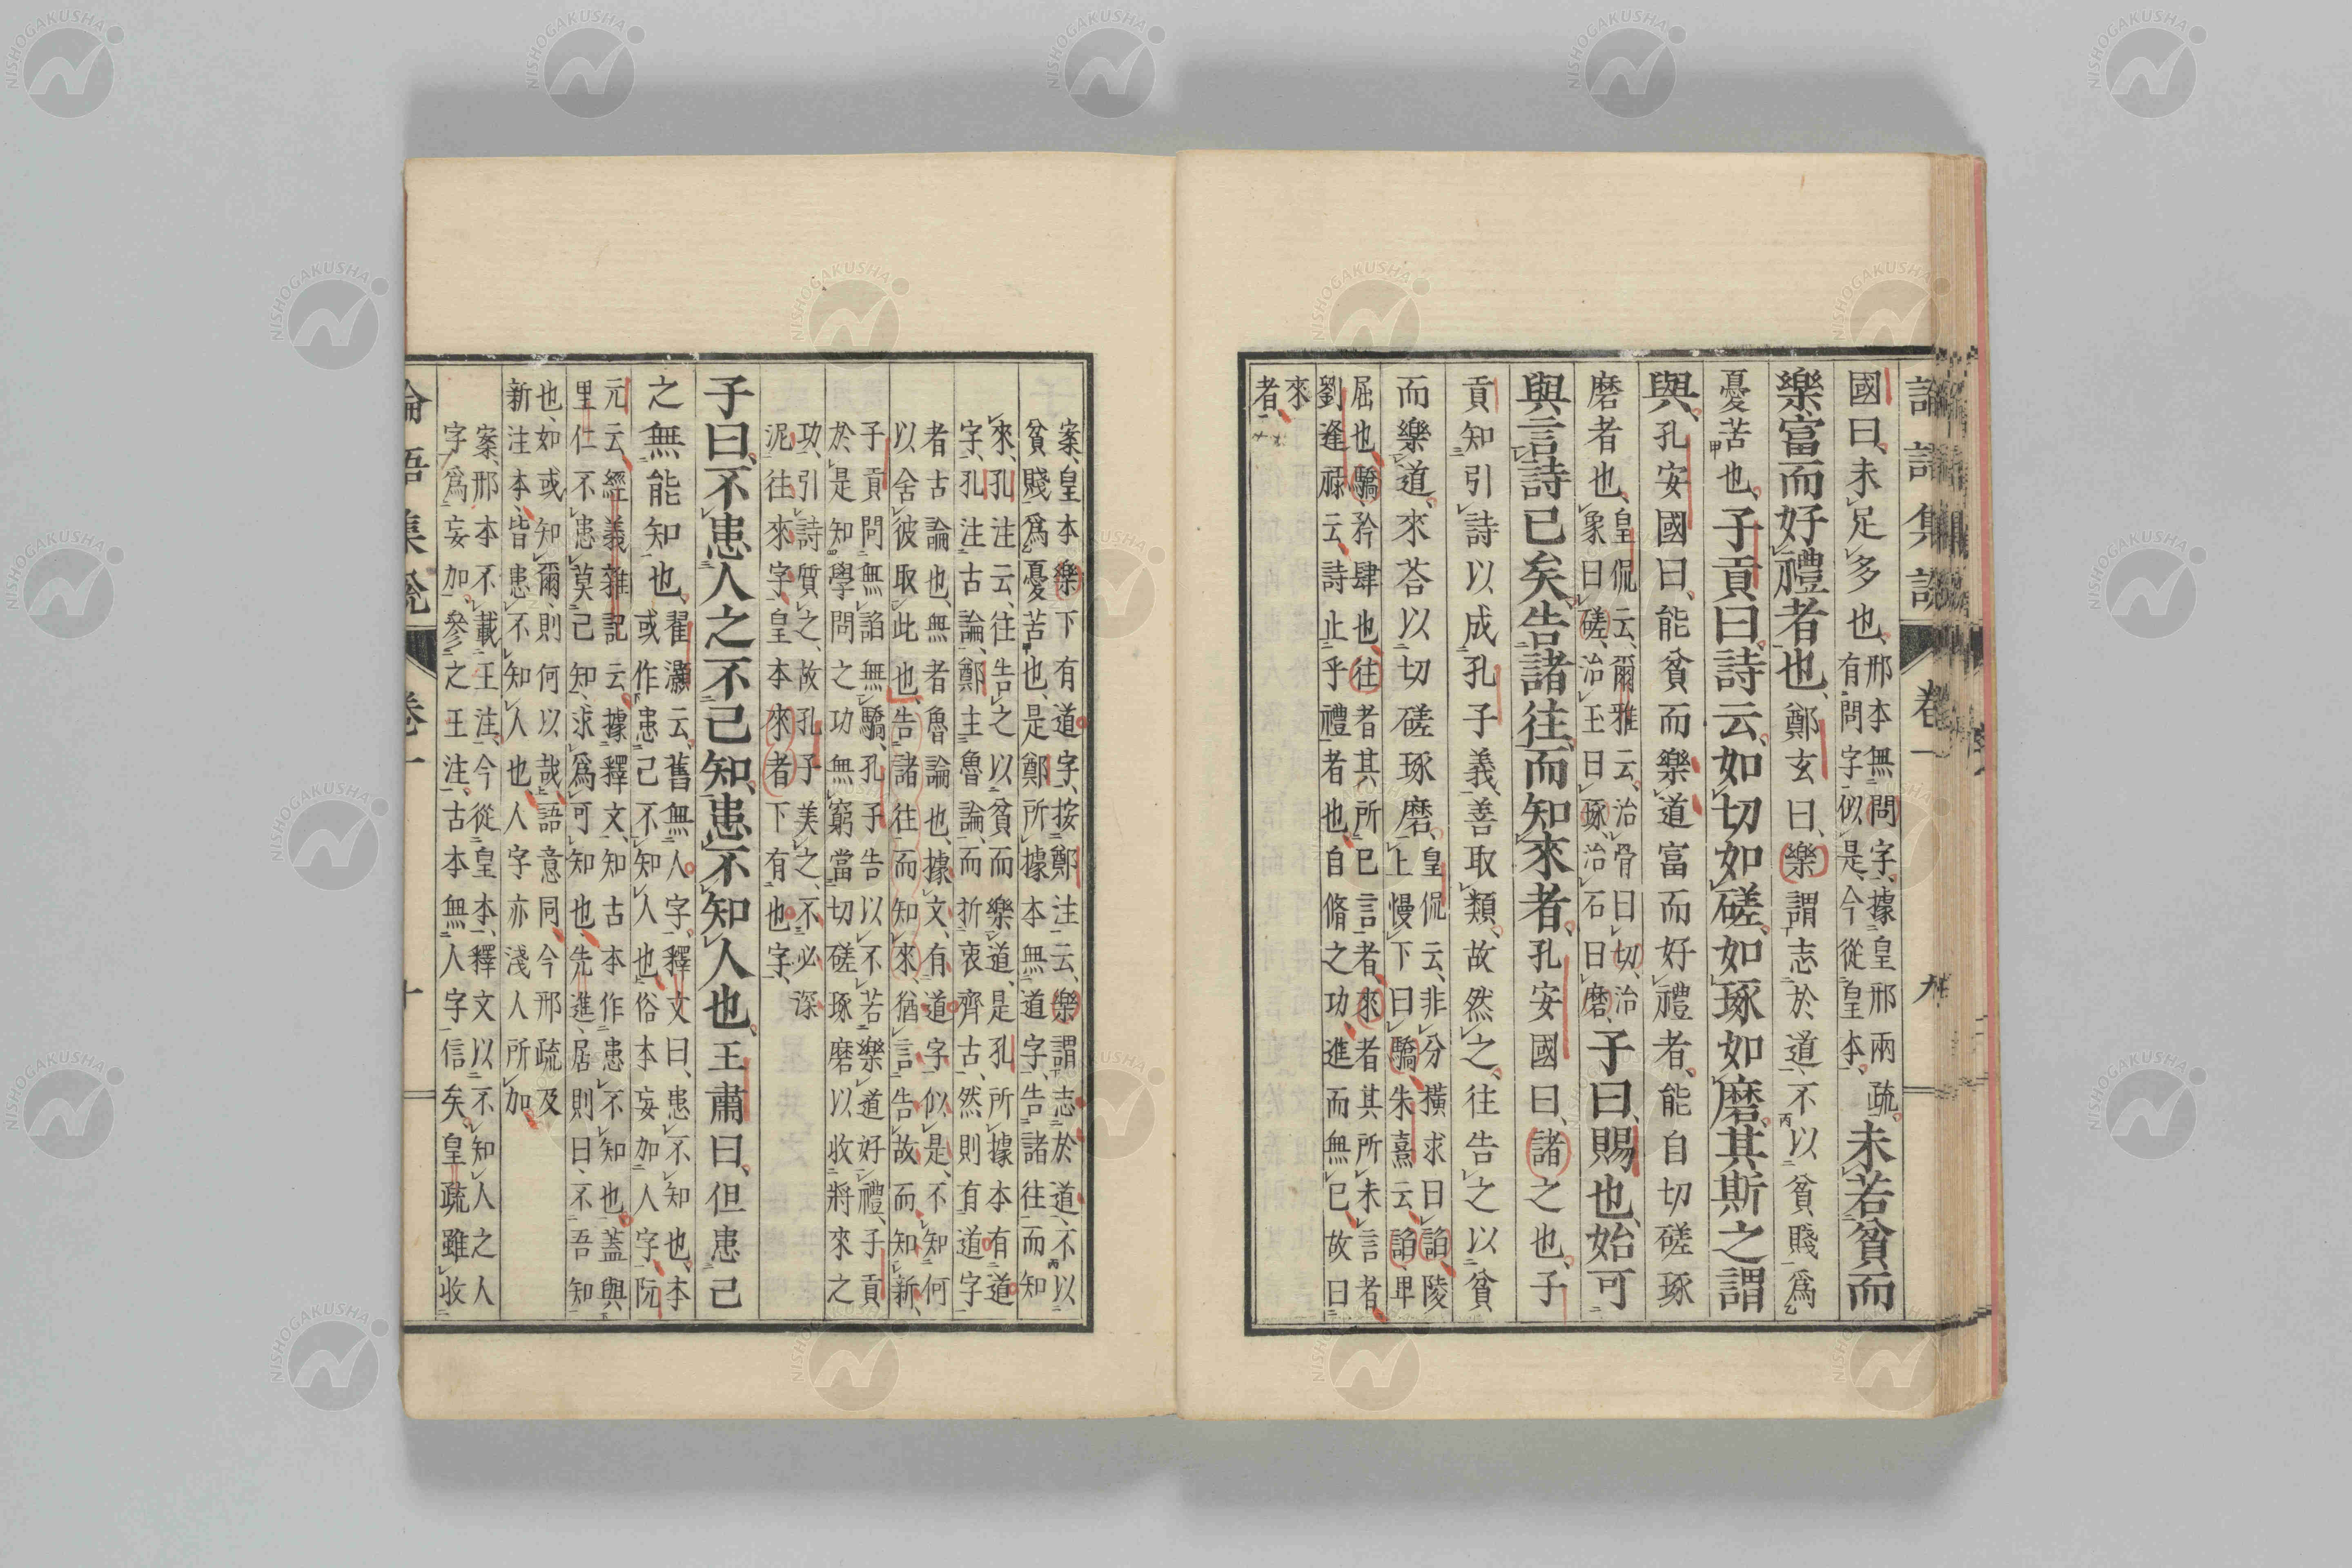 國曰、未足多也、邢本無問字、據皇邢兩疏。有問字似是、今從皇本、未若貧而
樂富而好禮者也、鄭玄曰、樂謂志於道、不以貧賤爲
憂苦也、子貢曰、詩云、如切如磋、如琢如磨、其斯之謂
與、孔安國曰、能貧而樂道、富而好禮者、能自切磋琢
磨者也、皇侃云、爾雅云、治骨曰切、治象曰磋、治玉曰琢、治石曰磨、子曰、賜也、始可
與言詩已矣、告諸往而知來者、孔安國曰、諸之也、子
貢知引詩以成孔子義、善取類、故然之、往告之以貧
而樂道、來荅以切磋琢磨、皇侃云、非分橫求曰諂、陵上慢下曰驕、朱熹云、諂、卑
屈也、驕、矜肆也、往者其所已言者、來者其所未言者
劉逢祿云、詩止乎禮者也、自脩之功、進而無已、故曰
來
者、
論語集說 卷一 九
案、皇本樂下有道字、按鄭注云、樂謂志於道、不以
貧賤爲憂苦也、是鄭所據本無道字、告諸往而知
來、孔注云、往告之以貧而樂道、是孔所據本有道
字、孔注古論、鄭主魯論、而折衷齊古、然則有道字
者古論也、無者魯論也、據文、有道字似是、不知何
以舍彼取此也、告諸往而知來、猶言告故而知新、
子貢問無諂無驕、孔子告以不若樂道好禮、子貢
於是知學問之功無窮、當切磋琢磨以收將來之
功、引詩質之、故孔子美之、不必深
泥往來字、皇本來者下有也字、
子曰、不患人之不己知、患不知人也、王肅曰、但患己
之無能知也、翟灝云、舊無人字、釋文曰、患不知也、本
或作患己不知人也、俗本妄加人字、阮
元云、經義雜記云、據釋文、知古本作患不知也、蓋與
里仁不患莫己知、求爲可知也、先進、居則曰、不吾知
也、如或知爾、則何以哉、語意同、今邢疏及
新注本、皆患不知人也、人字亦淺人所加、
案、邢本不載王注、今從皇本、釋文以不知人之人
字爲妄加、參之王注、古本無人字信矣、皇疏雖收
論語集說 卷一 十